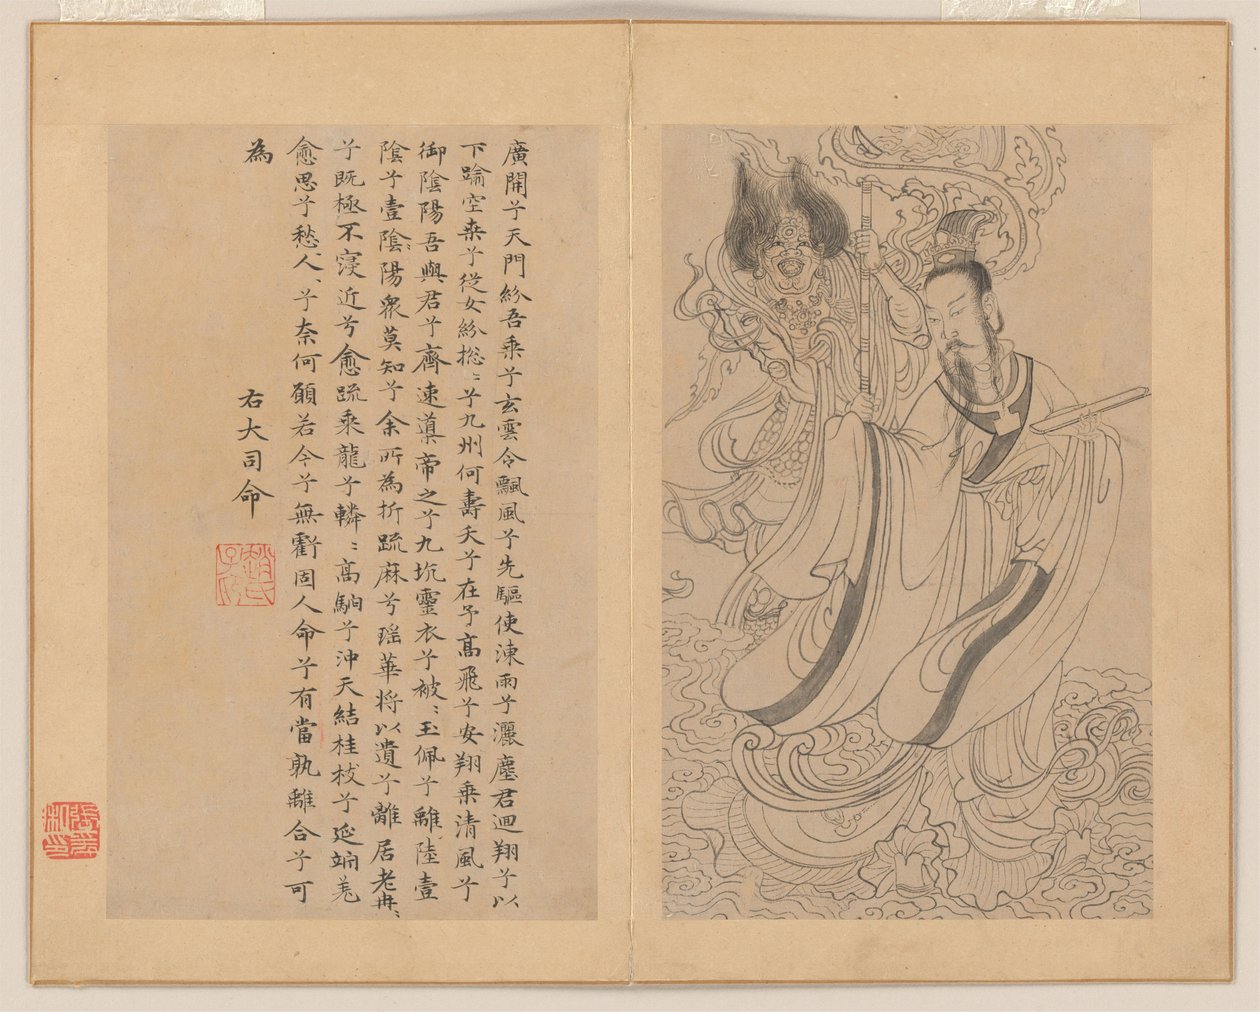 廣開兮天門紛吾乘兮玄雲令飄風兮先驅使涷雨兮灑塵君迴翔兮以
下踰空桒兮從女紛緫〻兮九州何壽夭兮在予高飛兮安翔乘清風兮
御陰陽吾與君兮齊速導帝之兮九坑靈衣兮被〻玉佩兮離陸壹
陰兮壹陰〻陽眾莫知兮余所為折疏麻兮瑤華將以遺兮離居老冉〻
兮既極不寖近兮愈疏乘龍兮轔〻高駉兮沖天結桂枝兮延竚羌
愈思兮愁人〻兮奈何願若今兮無虧固人命兮有當孰離合兮可
為
右大司命
趙氏子昂